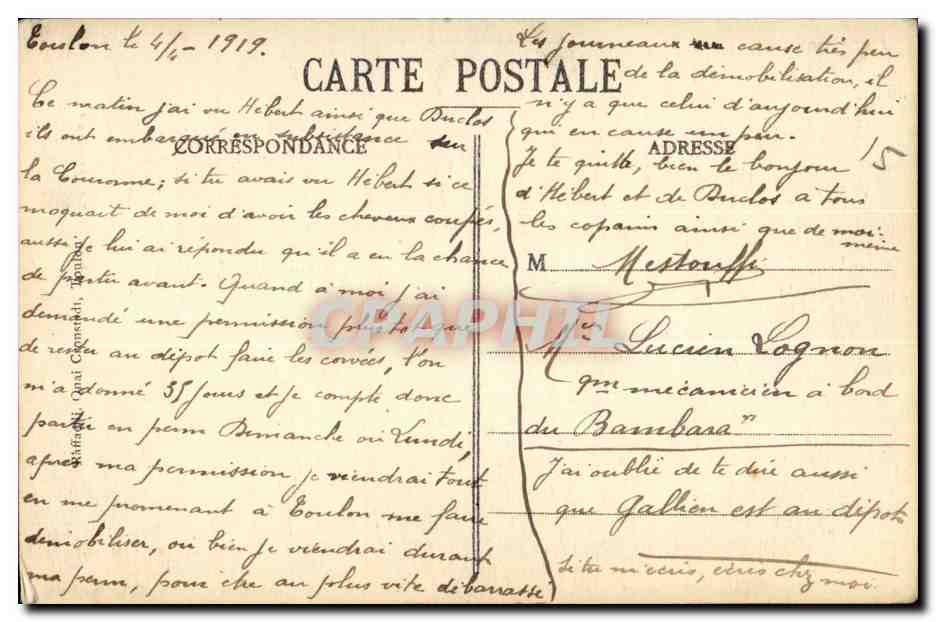 Toulon le 4/4 - 1919.
CARTE POSTALE
CORRESPONDANCE
Ce matin j'ai vu Hébert ainsi que Duclos
ils ont embarqué en subsistance sur
la Couronne; si tu avais vu Hébert si ce
moquait de moi d'avoir les cheveux coupés,
aussi je lui ai répondu qu'il a eu la chance
de partir avant. Quand à moi j'ai
demandé une permission plustot que
de rester au dépot faire les corvées, l'on
m'a donné 35 jours et je compte donc
partir en perm Dimanche ou Lundi,
après ma permission je viendrai tout
en me promenant à Toulon me faire
démobiliser, ou bien je viendrai durant
ma perm, pour être au plus vite débarassé
Les journeaux cause très peu
de la démobilisation, il
n'y a que celui d'aujourd'hui
qui en cause un peu.
ADRESSE
15
Je te quitte, bien le bonjour
d'Hébert et de Duclos à tous
les copains ainsi que de moi-
même
M Mestouffi
Mr Lucien Lognon
qm mécanicien à bord
du Bambara"
J'ai oublié de te dire aussi
que Gallien est au dépot
si tu m'écris, écris chez moi.
Raffaelli, Quai Cronstadt, Toulon
CPAPHIL